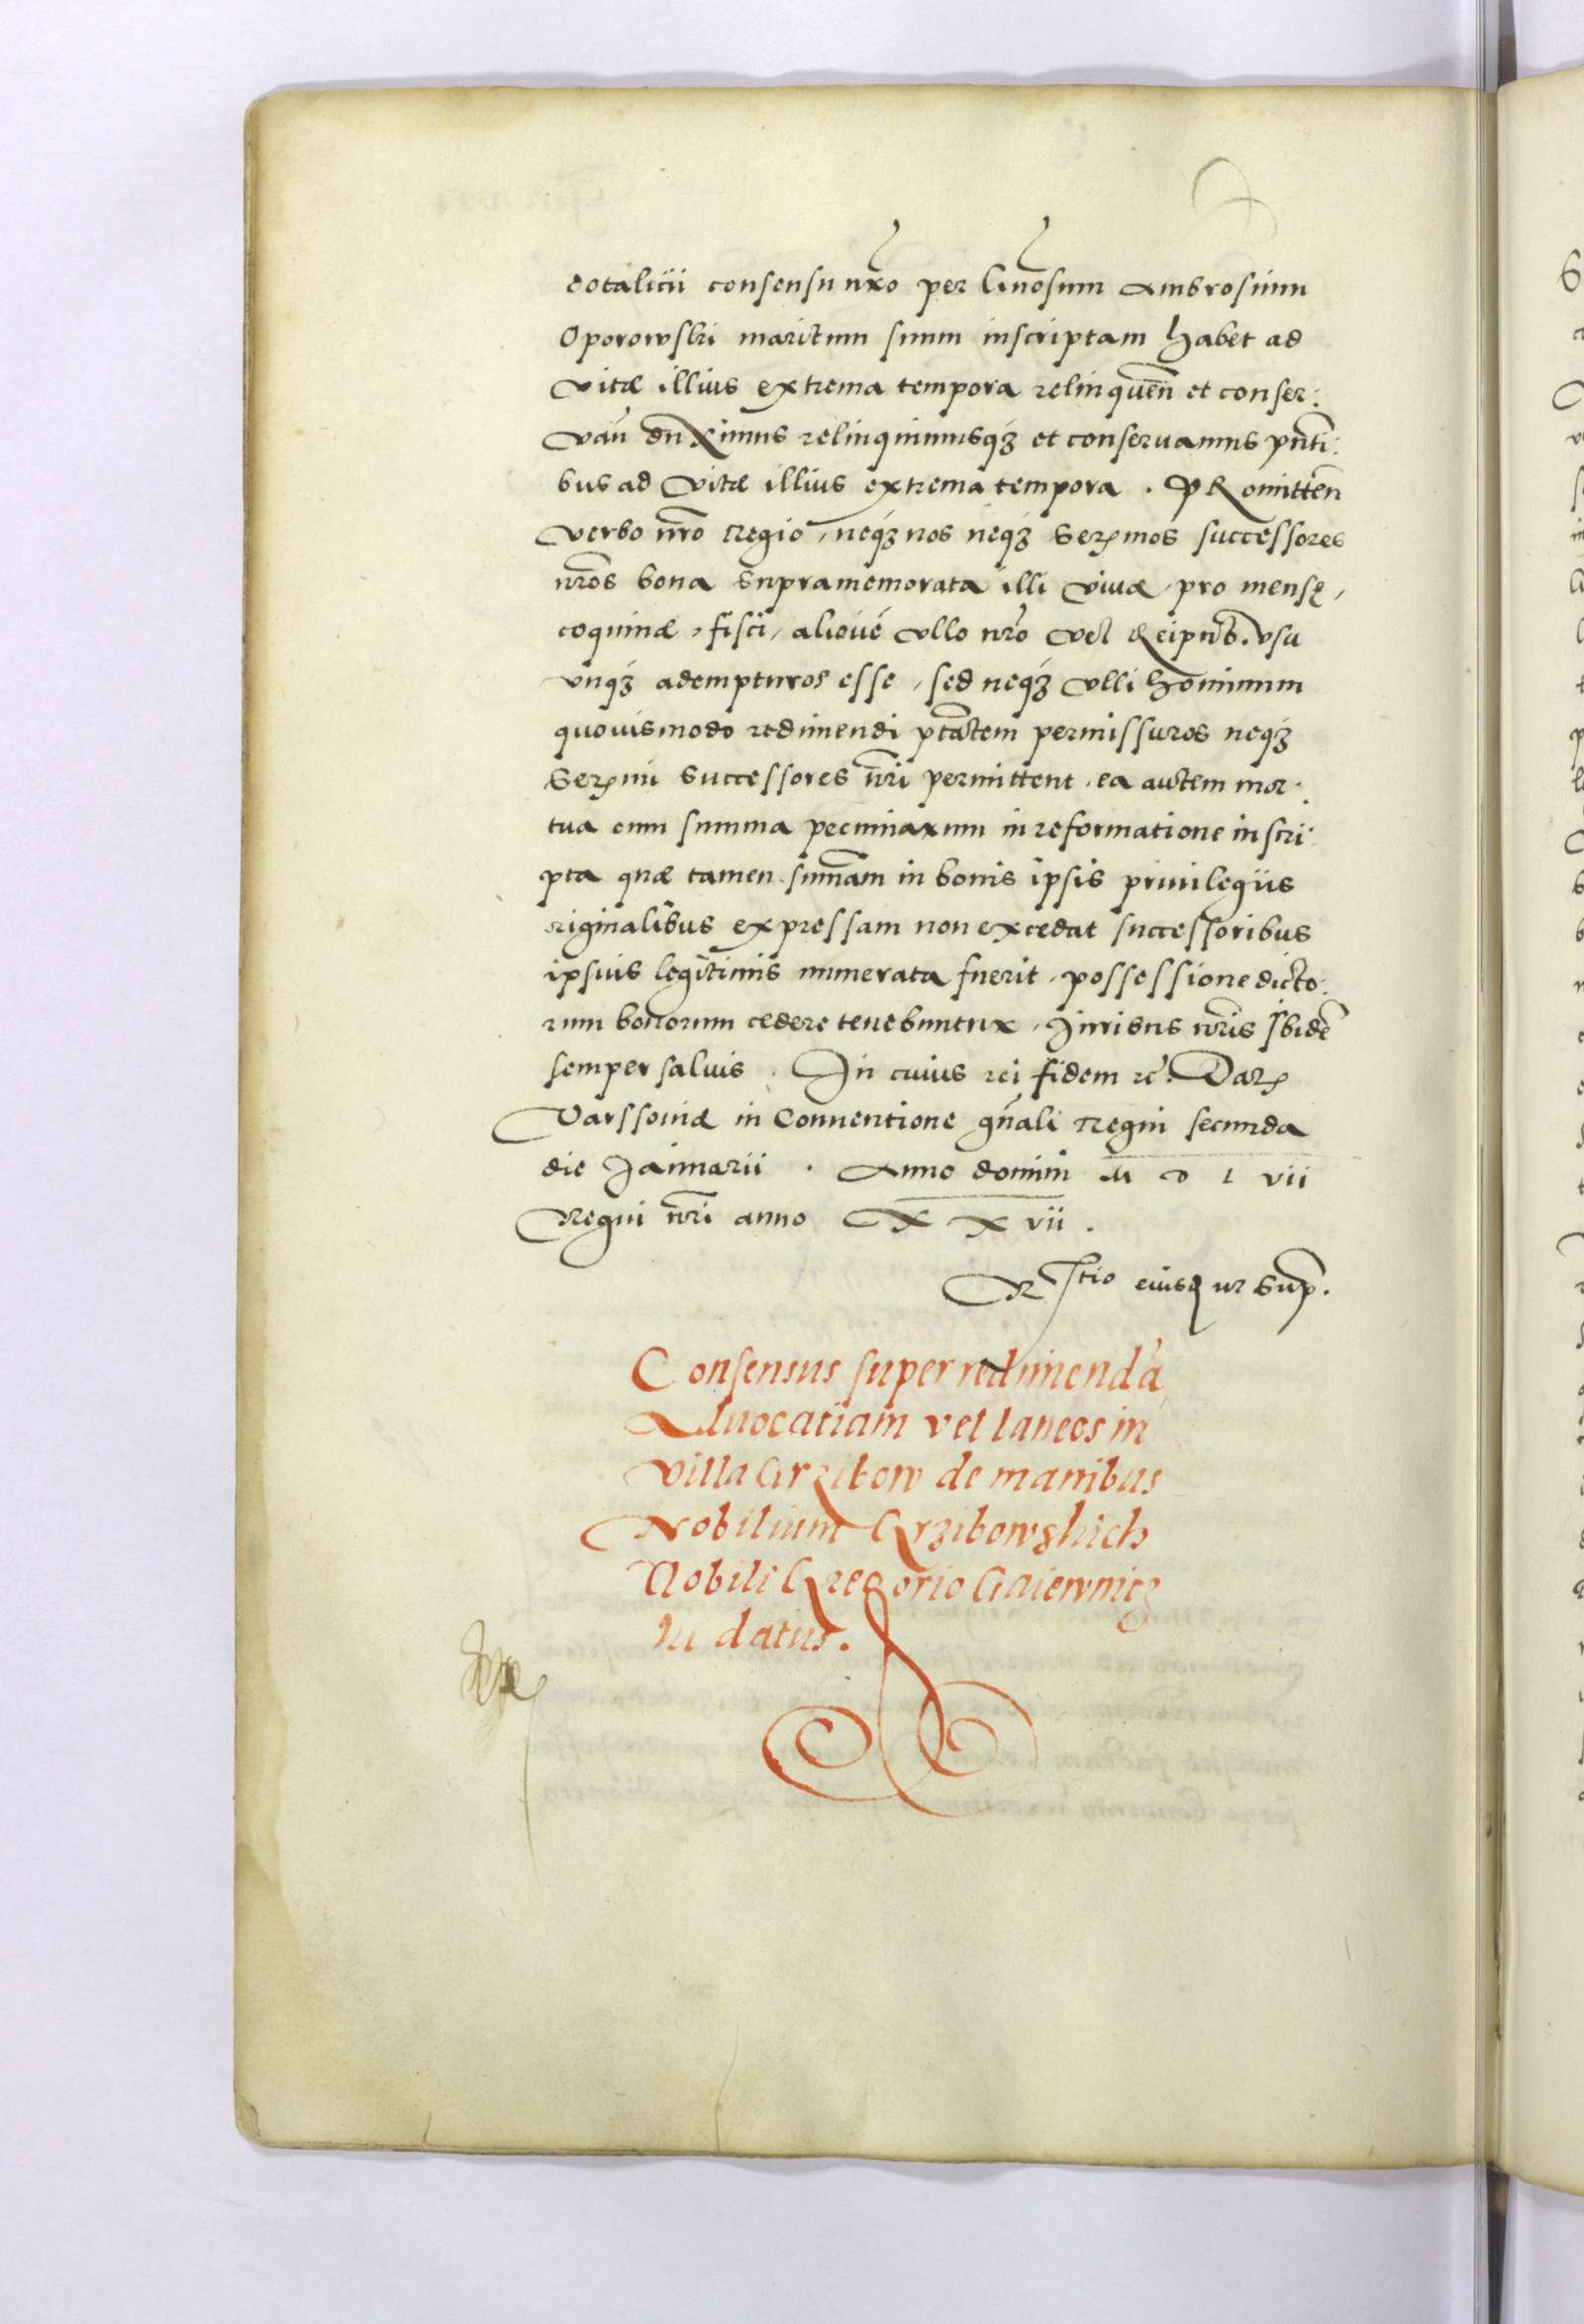 dotalicii consensu nr̃o per Gnõsum Ambrosium
Oporowski maritum suum inscriptam habet ad
vitæ illius extrema tempora relinquen̄ et conser:
uan̄ duximus relinquimusq́ꝫ et conseruamus pn̄ti:
bus ad vitæ illius extrema tempora. PRomitten̄
verbo nr̃o Regio, neq́ꝫ nos neq́ꝫ Serꝫmos successores
nr̃os bona supramemorata illi viuæ, pro mensę,
coquinæ, fisci, alioué vllo nr̃o vel Reipub. vsu
vnq́ꝫ adempturos esse, sed neq́ꝫ vlli hominum
quouismodo redimendi ptãtem permissuros neq́ꝫ
Serꝫmi Successores nr̃i permittent. ea autem mor:
tua cum summa pecuniarum in reformatione inscri:
pta quæ tamen sum̄am in bonis ipsis priuilegiis
originalibus expressam non excedat successoribus
ipsius legitimis numerata fuerit, possessione dicto:
rum bonorum cedere tenebuntur, Juribus nr̃is Ibidē
semper saluis. In cuius rei fidem rē. Datꝫ
Varssouiæ in Conuentione gn̄ali Regni secunda
die Januarii. Anno domini M D L vii
Regni nr̃i anno X X vii.
R̃stio eiusq ut sup̄.
Consensus super redimenda
Aduocatiam vel laneos in
villa Grzibow de manibus
Nobilium Grzibowskich
Nobili Gregorio Gaiewnicz
ki datus.